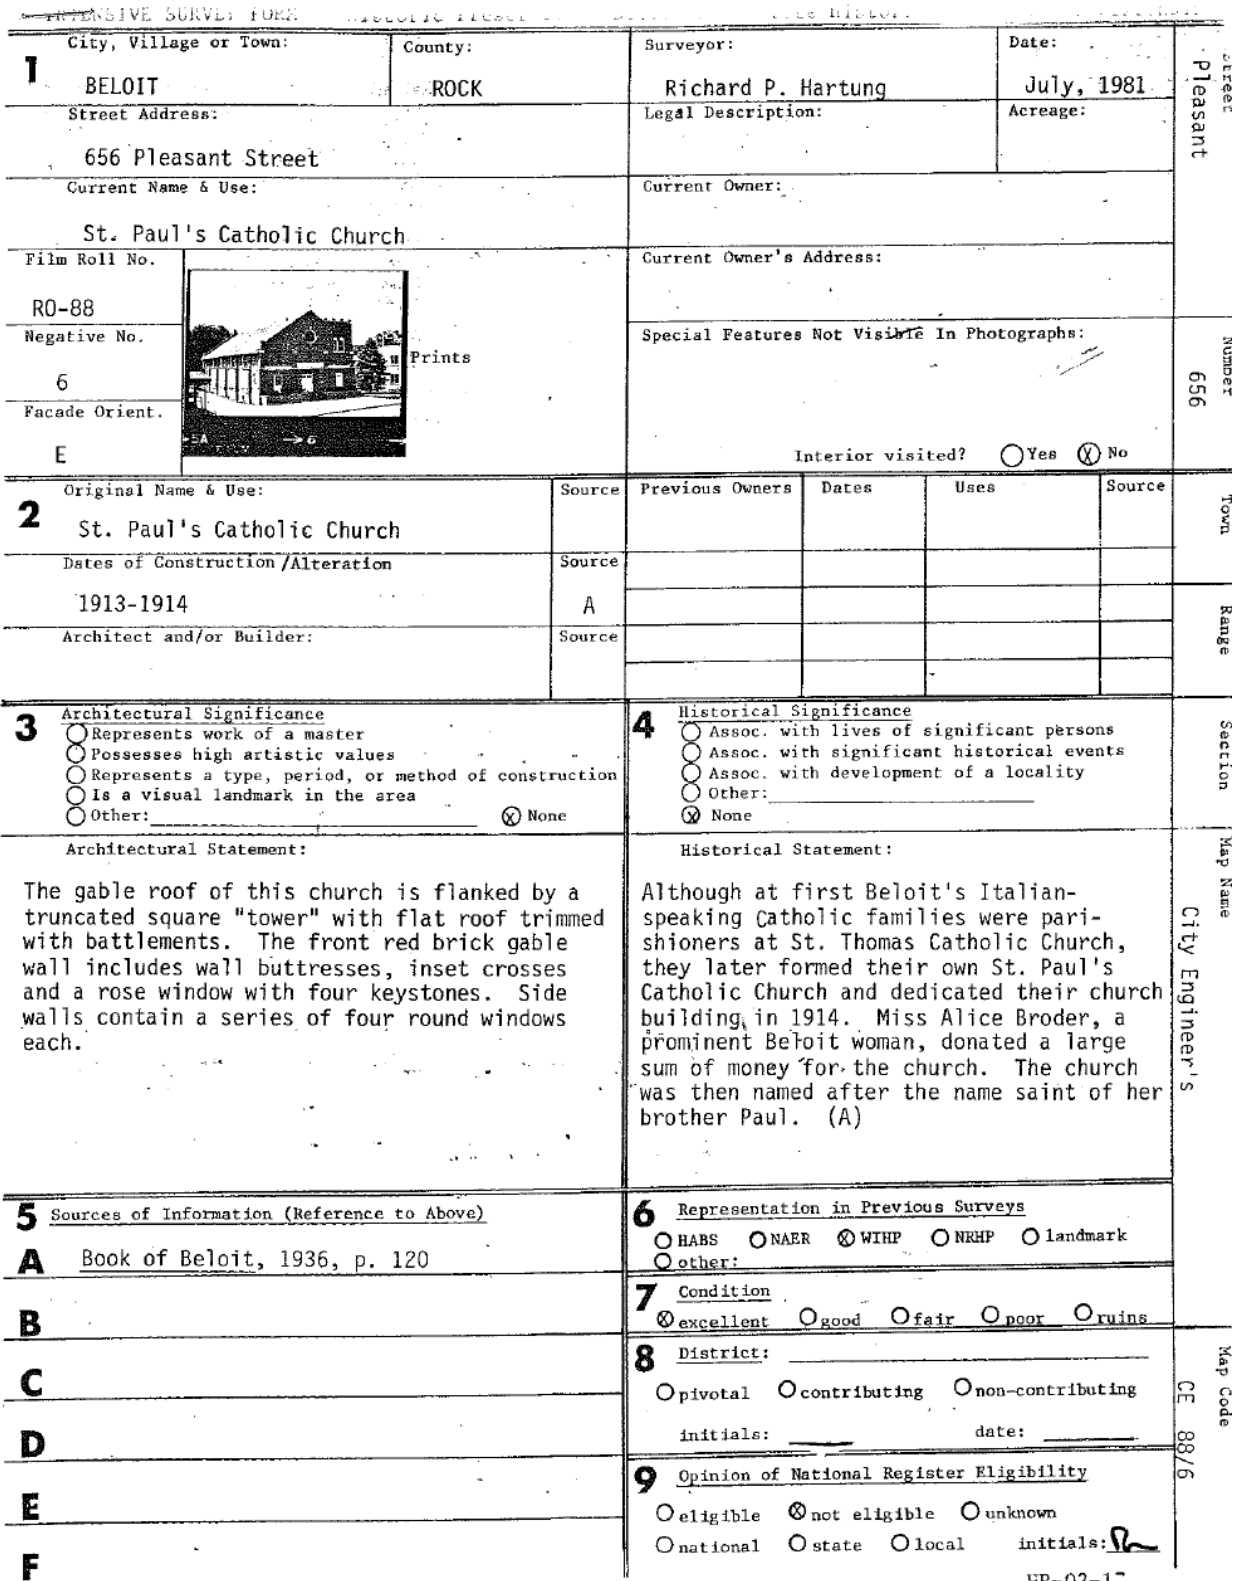 INTENSIVE SURVEY FORM
1
City, Village or Town:
BELOIT
County:
ROCK
Surveyor:
Richard P. Hartung
Date:
July, 1981
Street Address:
656 Pleasant Street
Legal Description:
Acreage:
Current Name & Use:
St. Paul's Catholic Church
Current Owner:
Film Roll No.
RO-88
Current Owner's Address:
Negative No.
6
Prints
Special Features Not Visible In Photographs:
Facade Orient.
E
5A →6
Interior visited? Yes ⓧ No
2
Original Name & Use:
St. Paul's Catholic Church
Source
Previous Owners Dates Uses Source
Dates of Construction/Alteration
1913-1914
Source
A
Architect and/or Builder:
Source
3
Architectural Significance
Represents work of a master
Possesses high artistic values
Represents a type, period, or method of construction
Is a visual landmark in the area
Other: ⓧ None
4
Historical Significance
Assoc. with lives of significant persons
Assoc. with significant historical events
Assoc. with development of a locality
Other:
ⓧ None
Architectural Statement:
The gable roof of this church is flanked by a
truncated square "tower" with flat roof trimmed
with battlements. The front red brick gable
wall includes wall buttresses, inset crosses
and a rose window with four keystones. Side
walls contain a series of four round windows
each.
Historical Statement:
Although at first Beloit's Italian-
speaking Catholic families were pari-
shioners at St. Thomas Catholic Church,
they later formed their own St. Paul's
Catholic Church and dedicated their church
building in 1914. Miss Alice Broder, a
prominent Beloit woman, donated a large
sum of money for the church. The church
was then named after the name saint of her
brother Paul. (A)
5
Sources of Information (Reference to Above)
A Book of Beloit, 1936, p. 120
B
C
D
E
F
6
Representation in Previous Surveys
HABS NAER ⓧ WIHP NRHP landmark
other:
7
Condition
ⓧ excellent good fair poor ruins
8
District:
pivotal contributing non-contributing
initials: date:
9
Opinion of National Register Eligibility
eligible ⓧ not eligible unknown
national state local initials:
HP-02-17
Street
Pleasant
Number
656
Town
Range
Section
Map Name
City Engineer's
Map Code
CE 88/6